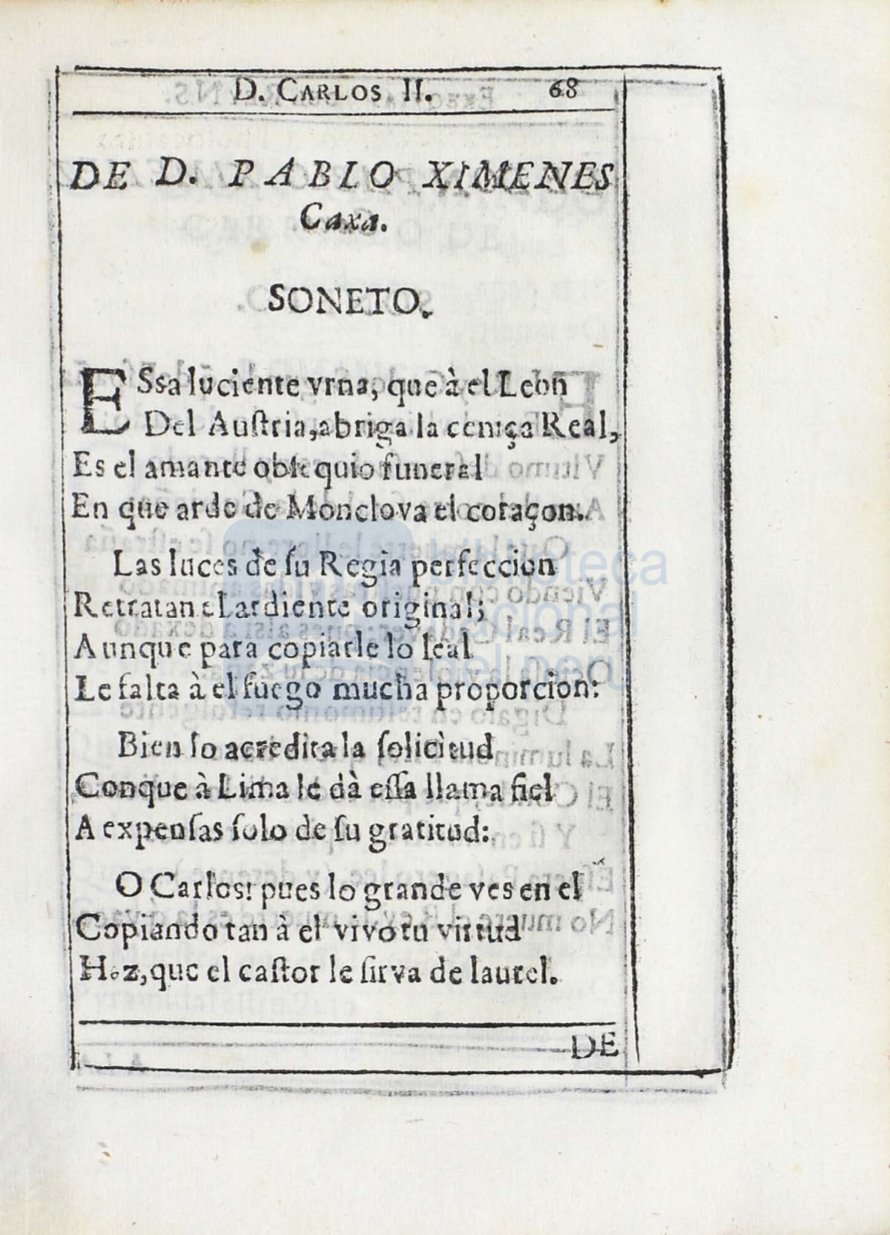 D. CARLOS II. 68
DE D. PABLO XIMENES
Caxa.
SONETO.
ESsa luciente vrna, que à el Leon
Del Austria, abriga la ceniça Real,
Es el amante obsequio funeral
En que arde de Monclova el coraçon.
Las luces de su Regia perfeccion
Retratan el ardiente original;
Aunque para copiarle lo leal
Le falta à el fuego mucha proporcion:
Bien lo acredita la solicitud
Conque à Lima le dà essa llama fiel
A expensas solo de su gratitud:
O Carlos! pues lo grande ves en el
Copiando tan à el vivo tu virtud
Haz, que el castor le sirva de laurel.
DE
biblioteca
nacional
del perú